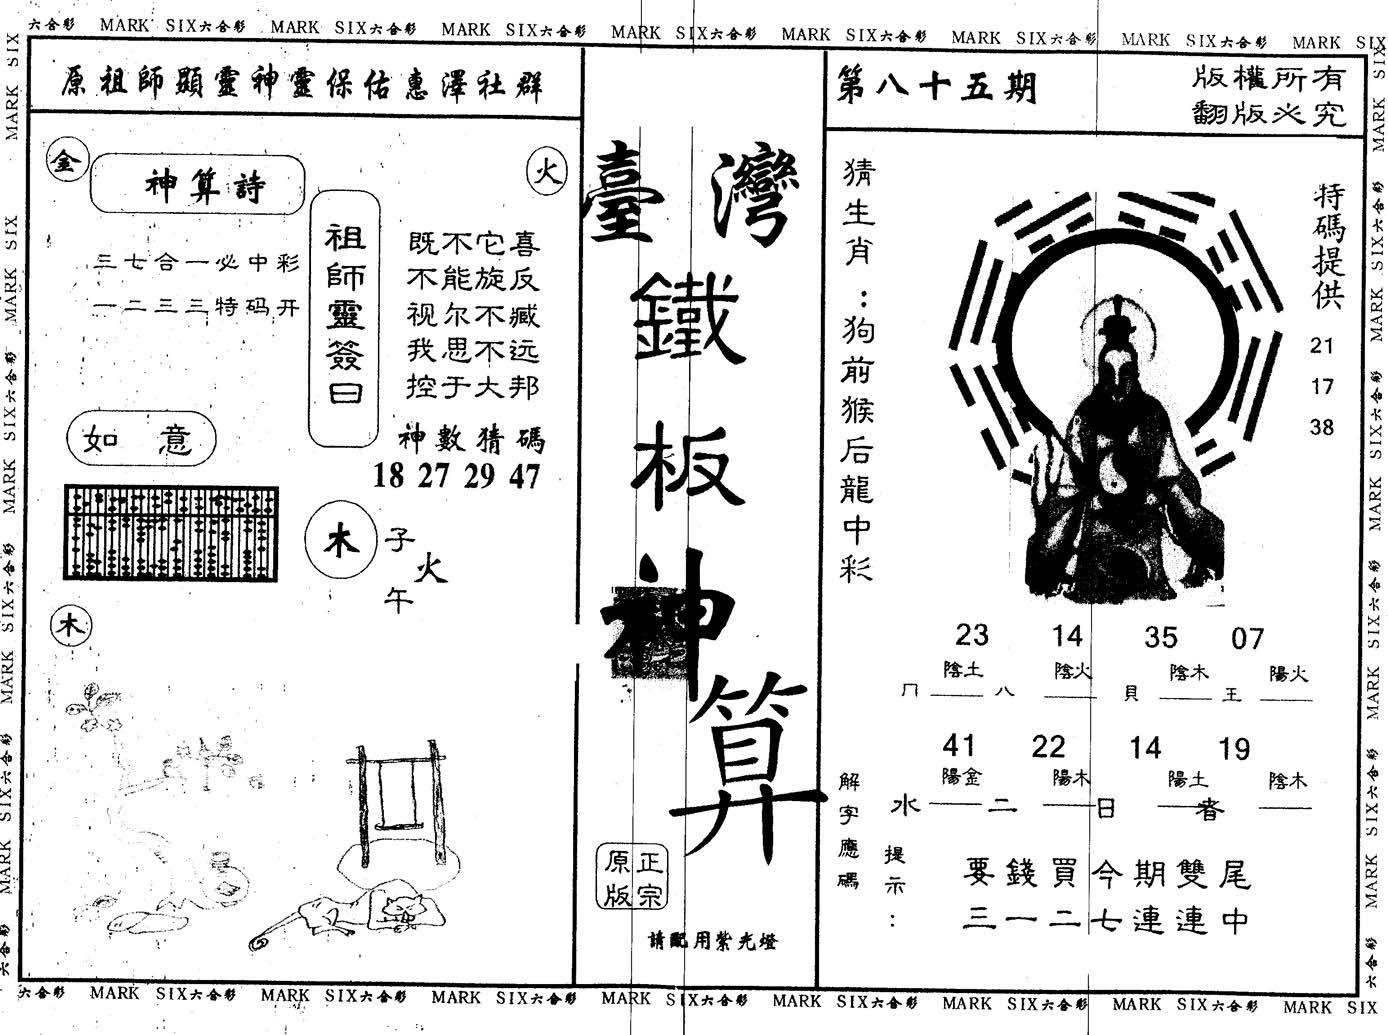 六合彩 MARK SIX六合彩 MARK SIX六合彩 MARK SIX六合彩 MARK SIX六合彩 MARK SIX六合彩 MARK SIX六合彩 MARK SIX六合彩 MARK SIX
原祖師顯靈神靈保佑惠澤社群
金
神算詩
火
三七合一必中彩
一二三三特码开
祖師靈簽曰
既不它喜
不能旋反
视尔不臧
我思不远
控于大邦
神數猜碼
18 27 29 47
如意
木
子
火
午
木
臺灣
鐵
板
神
算
正宗
原版
請配用紫光燈
第八十五期
版權所有
翻版必究
猜生肖：狗前猴后龍中彩
特碼提供
21
17
38
23 14 35 07
陰土 陰火 陰木 陽火
冂 八 貝 王
41 22 14 19
陽金 陽木 陽土 陰木
水 二 日 者
解字應碼
提示：
要錢買今期雙尾
三一二七連連中
六合彩 MARK SIX六合彩 MARK SIX六合彩 MARK SIX六合彩 MARK SIX六合彩 MARK SIX六合彩 MARK SIX六合彩 MARK SIX六合彩 MARK SIX